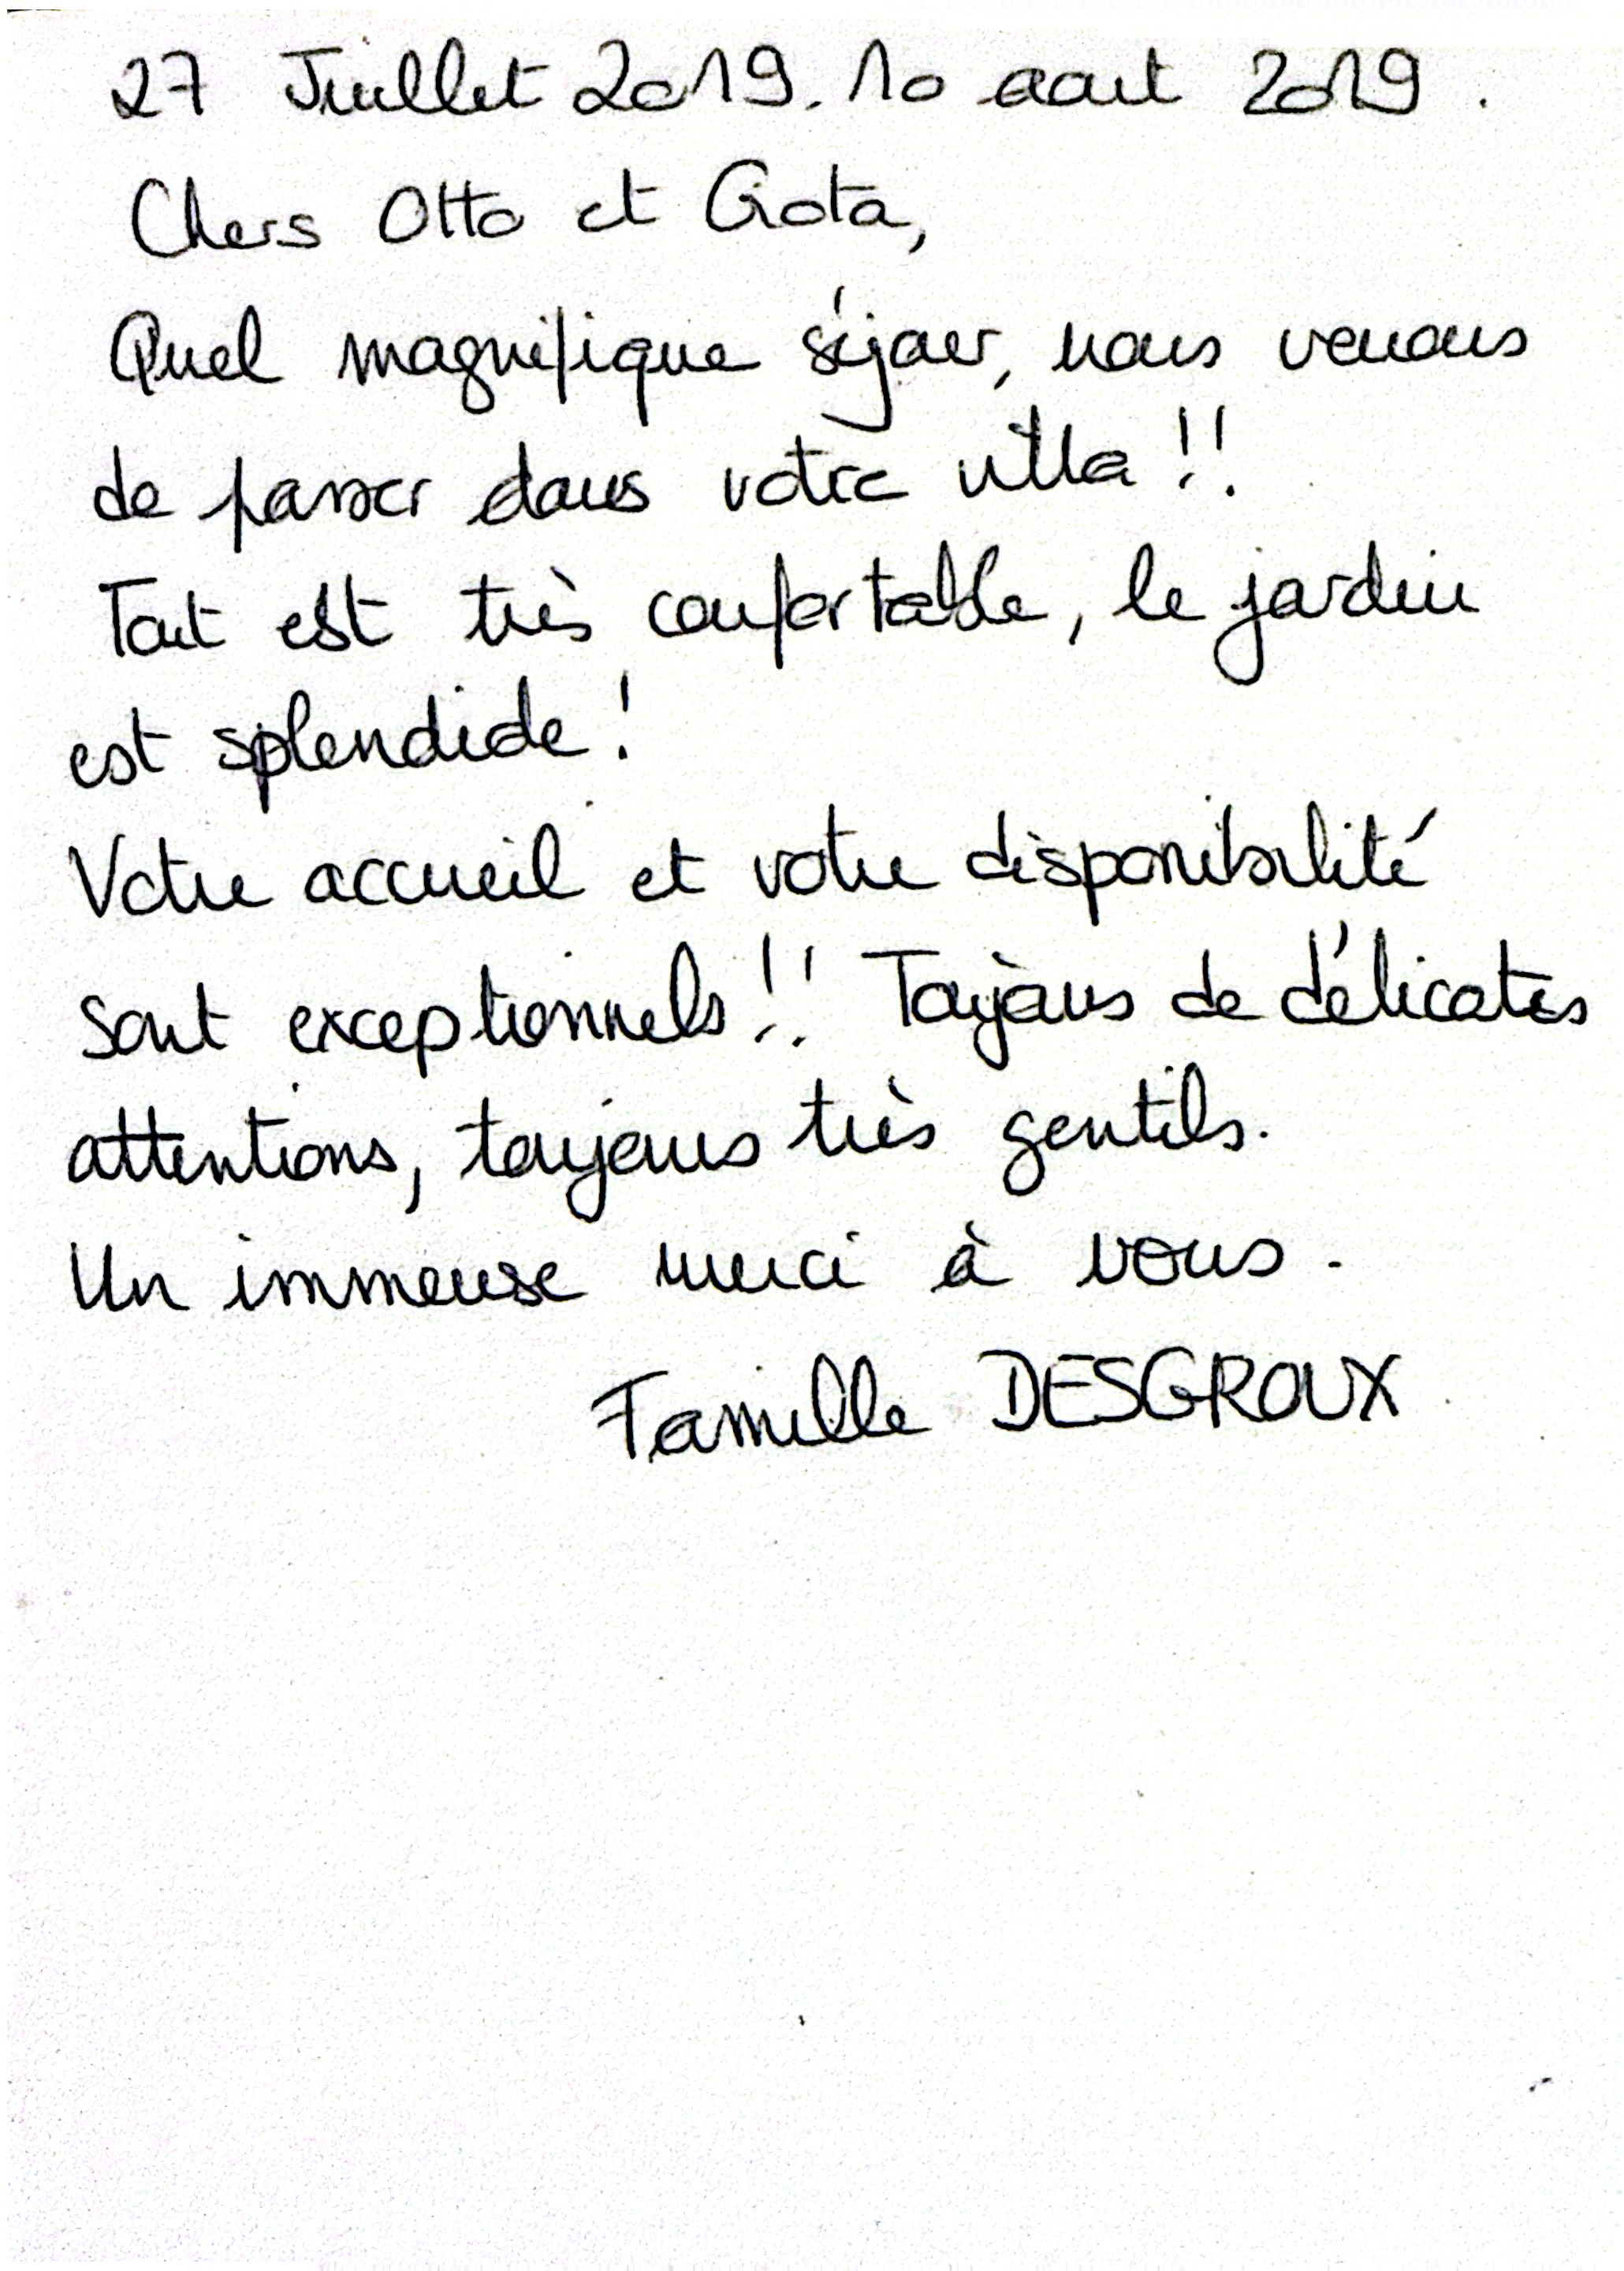 27 Juillet 2019. 10 aout 2019.
Chers Otto et Gota,
Quel magnifique séjour, nous venons
de passer dans votre villa !!
Tout est très confortable, le jardin
est splendide !
Votre accueil et votre disponibilité
sont exceptionnels !! Toujours de délicates
attentions, toujours très gentils.
Un immense merci à vous.
Famille DESGROUX